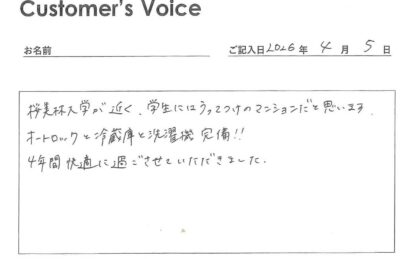 Customer's Voice
お名前
ご記入日2026年 4月 5日
桜美林大学が近く、学生にはうってつけのマンションだと思います。
オートロックと冷蔵庫と洗濯機完備!!
4年間快適に過ごさせていただきました。